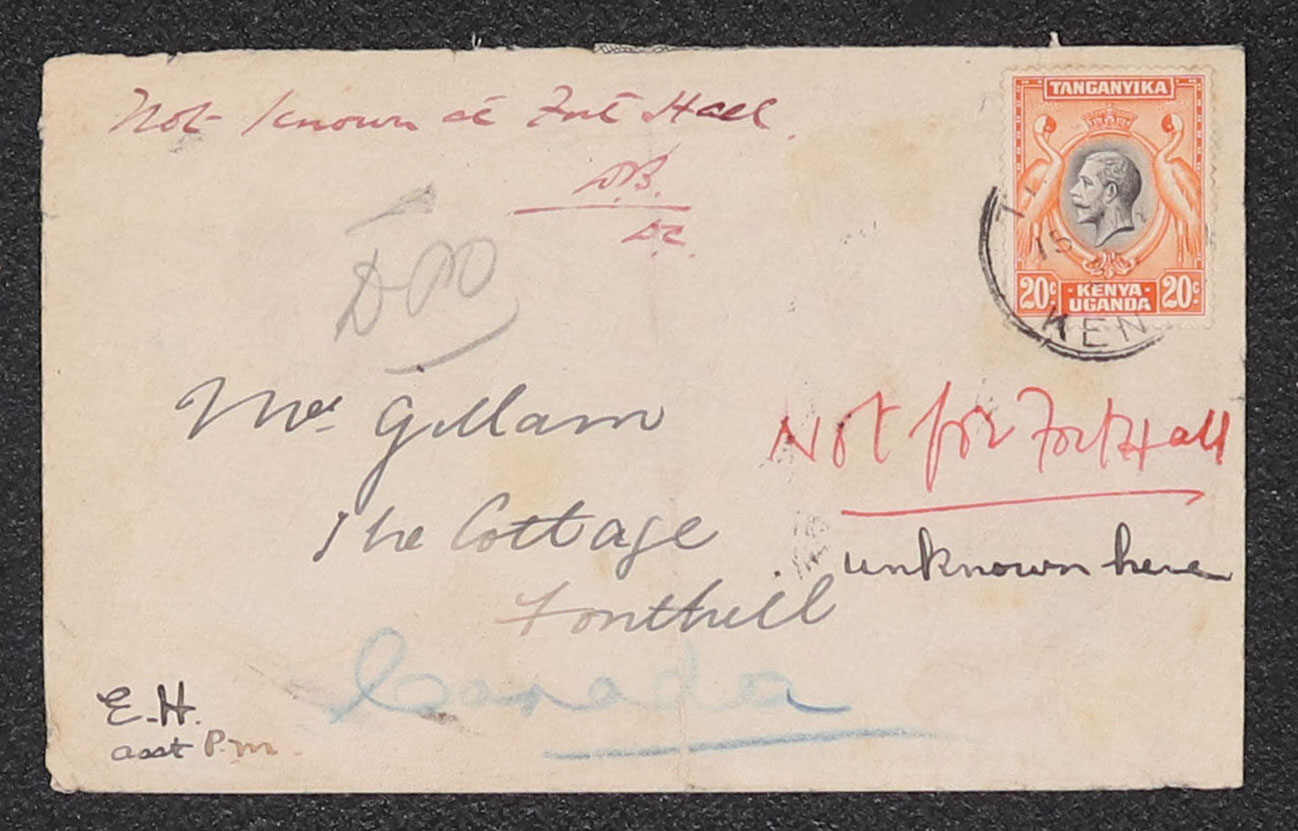 Not known at Fort Hall.
D.B.
D.C.
TANGANYIKA
20c KENYA 20c
UGANDA
15
KEN
Mrs. Gillam
The Cottage
Fonthill
Canada
Not for Fort Hall
unknown here
E.H.
asst P.m.